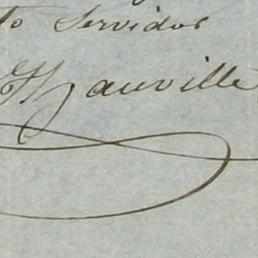 to Servidor
Hauville